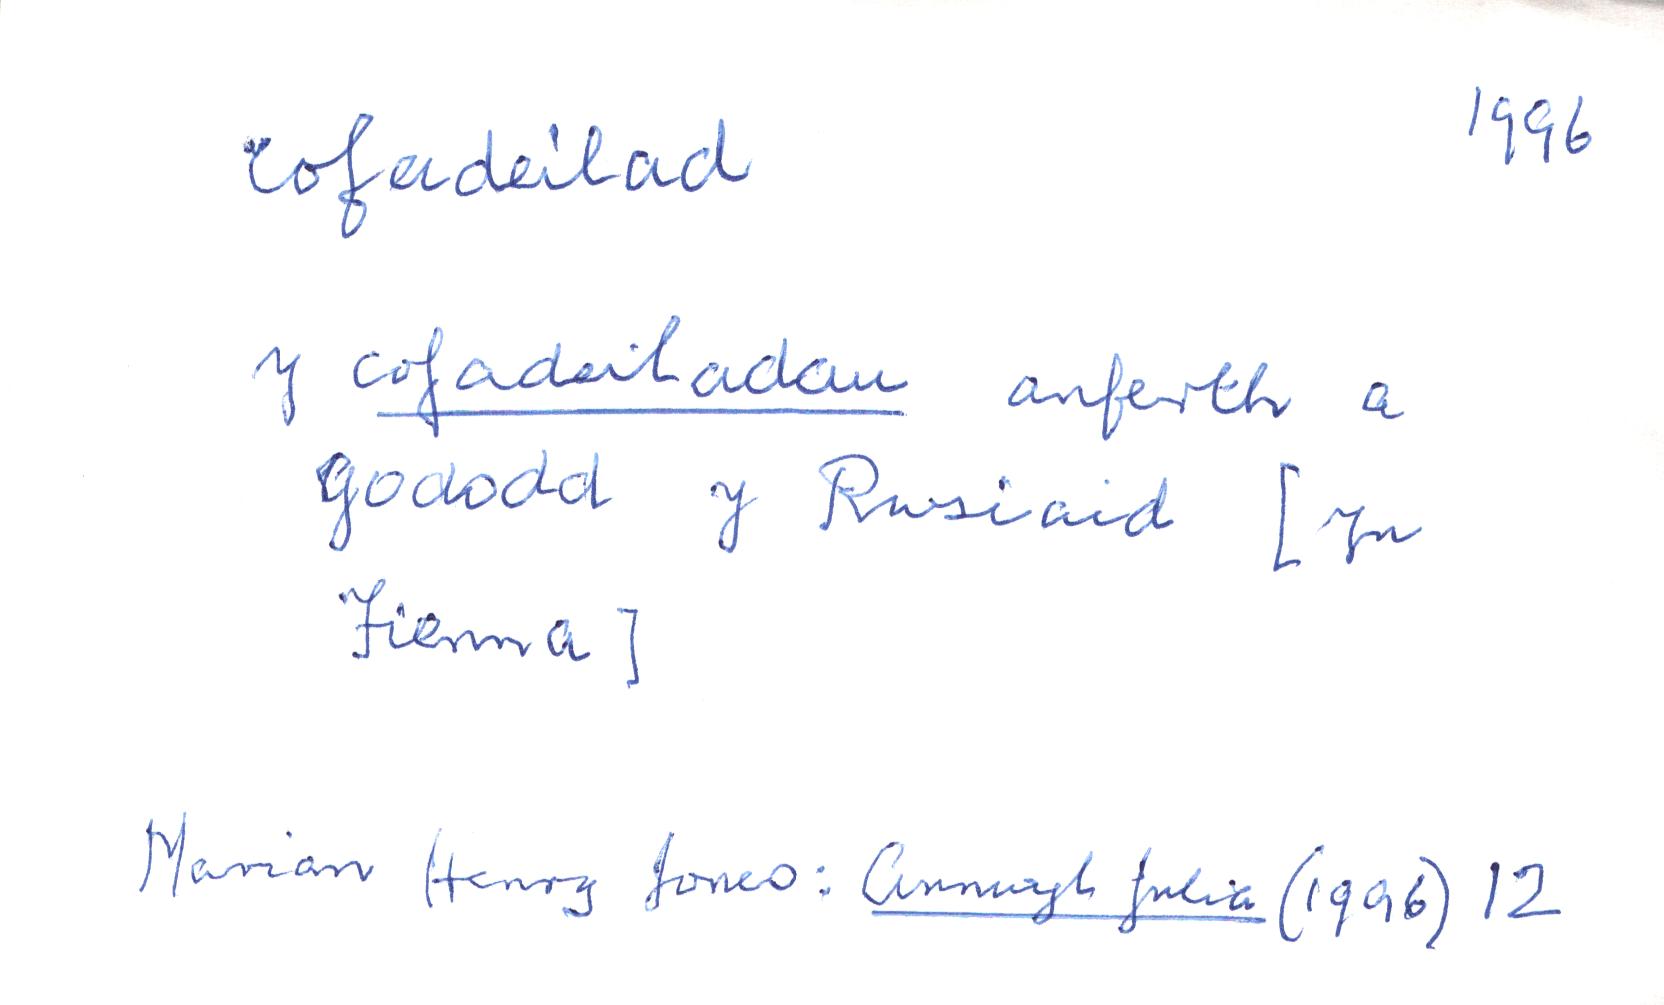 cofadeilad 1996
y cofadeiladau anferth a
gododd y Rwsiaid [yn
Fienna]
Marian Henry Jones: Annwyl Julia (1996) 12